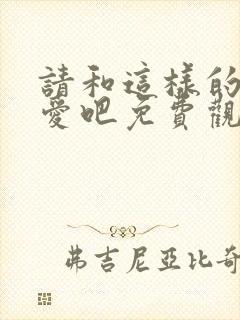 請和這樣的
愛吧免費觀
弗吉尼亞比奇